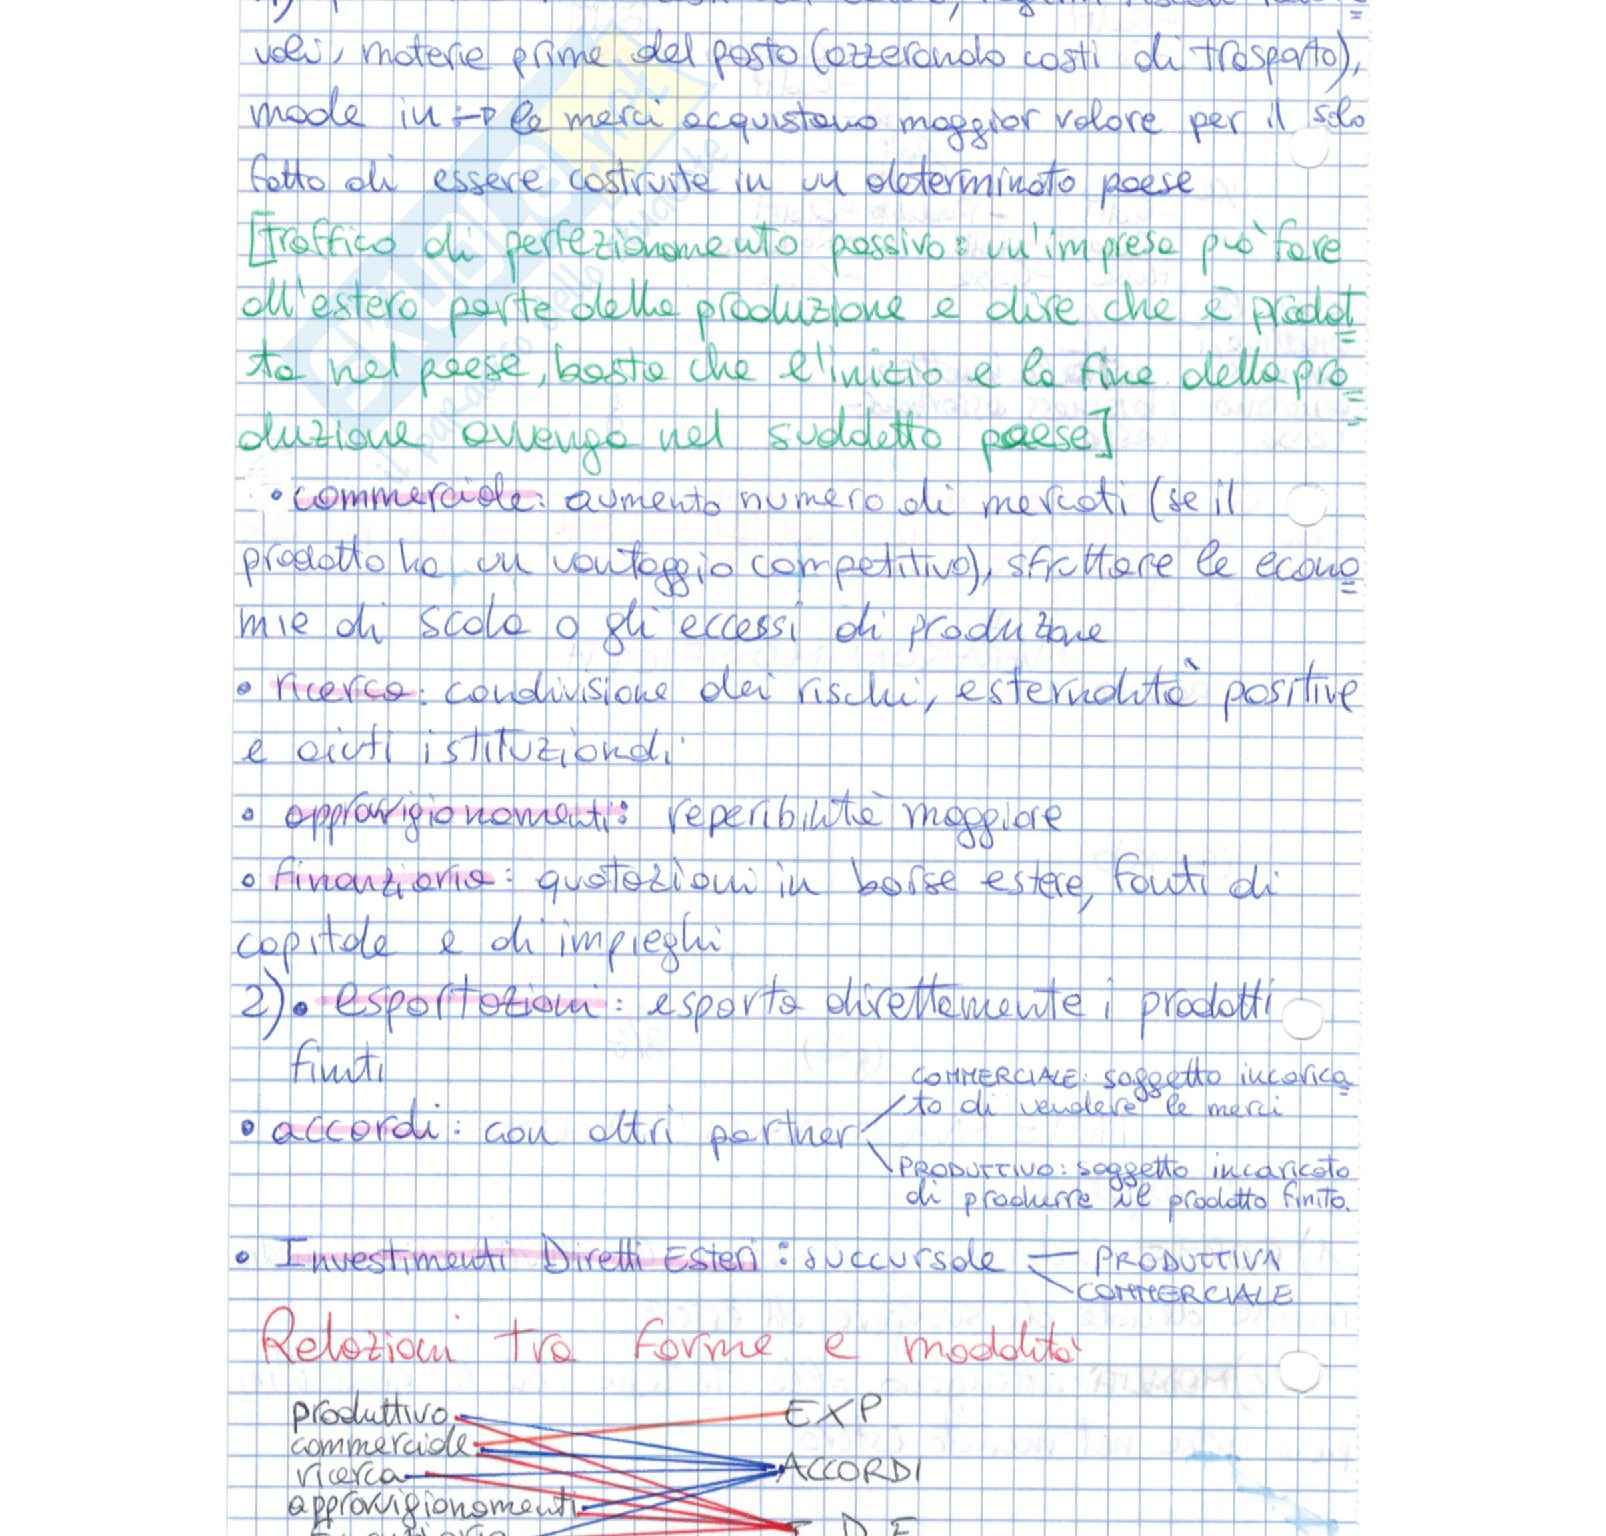 voli, materie prime del posto (azzerando costi di trasporto),
made in :→ le merci acquistano maggior valore per il solo
fatto di essere costruite in un determinato paese
[Traffico di perfezionamento passivo: un'impresa può fare
all'estero parte della produzione e dire che è prodot
ta nel paese, basta che l'inizio e la fine della pro
duzione avvenga nel suddetto paese]
• commerciale: aumento numero di mercati (se il
prodotto ha un vantaggio competitivo), sfruttare le econo
mie di scala o gli eccessi di produzione
• ricerca: condivisione dei rischi, esternalità positive
e aiuti istituzionali
• approvvigionamenti: reperibilità maggiore
• finanziaria: quotazioni in borse estere, fonti di
capitale e di impieghi
2) • esportazioni: esporta direttamente i prodotti
finiti
COMMERCIALE: soggetto incarica
to di vendere le merci
• accordi: con altri partner
PRODUTTIVO: soggetto incaricato
di produrre il prodotto finito.
• Investimenti Diretti Esteri: succursale — PRODUTTIVA
COMMERCIALE
Relazioni tra forme e modalità
produttivo EXP
commerciale
ricerca ACCORDI
approvvigionamenti